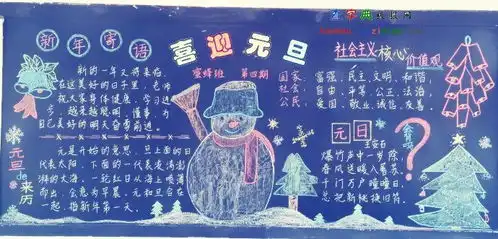 喜迎元旦
蜜蜂班 第四期
新年寄语
新的一年又将来临，
在这美好的日子里，老师
祝大家身体健康，学习进
步，越来越聪明，懂事，为
自己美好的明天奋勇前进。
元旦de来历
元是开始的意思，旦上面的日
代表太阳，下面的一代表波涛澎
湃的大海，一轮红日从海上喷薄
而出，会意为早晨，元和旦合在
一起，指新年第一天。
社会主义核心价值观
国家 富强、民主、文明、和谐、
社会 自由、平等、公正、法治、
公民 爱国、敬业、诚信、友善。
元日
王安石
爆竹声中一岁除，
春风送暖入屠苏。
千门万户曈曈日，
总把新桃换旧符。